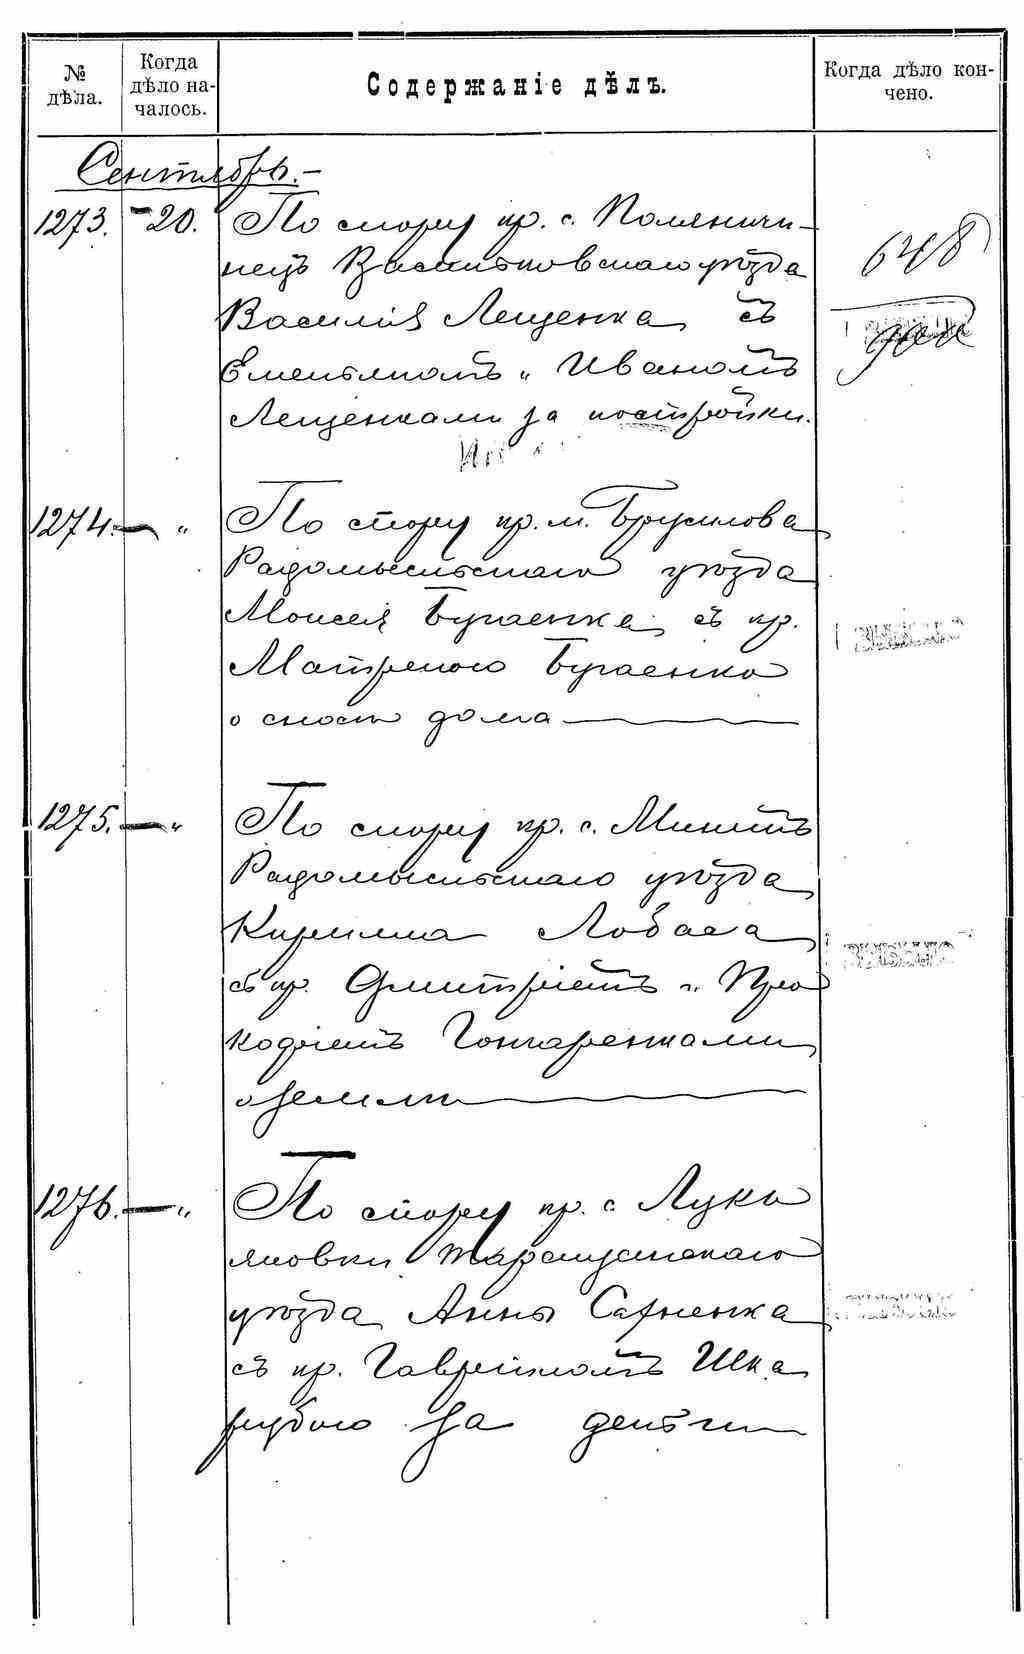 № дѣла.
Когда дѣло на-
чалось.
Содержаніе дѣлъ.
Когда дѣло кон-
чено.
Сентябрь.—
1273. -20. По спору кр. с. Поляничи-
нецъ Васильковскаго уѣзда
Василія Лещенка съ
Емельяномъ и Иваномъ
Лещенками за постройки.
648
1274.— „ По спору кр. м. Брусилова
Радомысльскаго уѣзда
Моисея Бугаенка съ кр.
Матреною Бугаенко
о сносѣ дома
1275.— „ По спору кр. с. Минитъ
Радомысльскаго уѣзда
Кирилла Лобаса
съ кр. Дмитріемъ и Про
кофіемъ Гончаренками
о землѣ
1276.— „ По спору кр. с. Лукь
яновки Таращанскаго
уѣзда Анны
съ кр. Гавріиломъ Шка
рубою за деньги